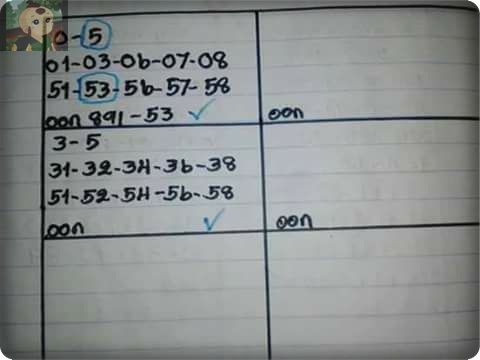 0-5
01-03-06-07-08
51-53-56-57-58
ออก 891-53 ✓
ออก
3-5
31-32-34-36-38
51-52-54-56-58
ออก ✓
ออก